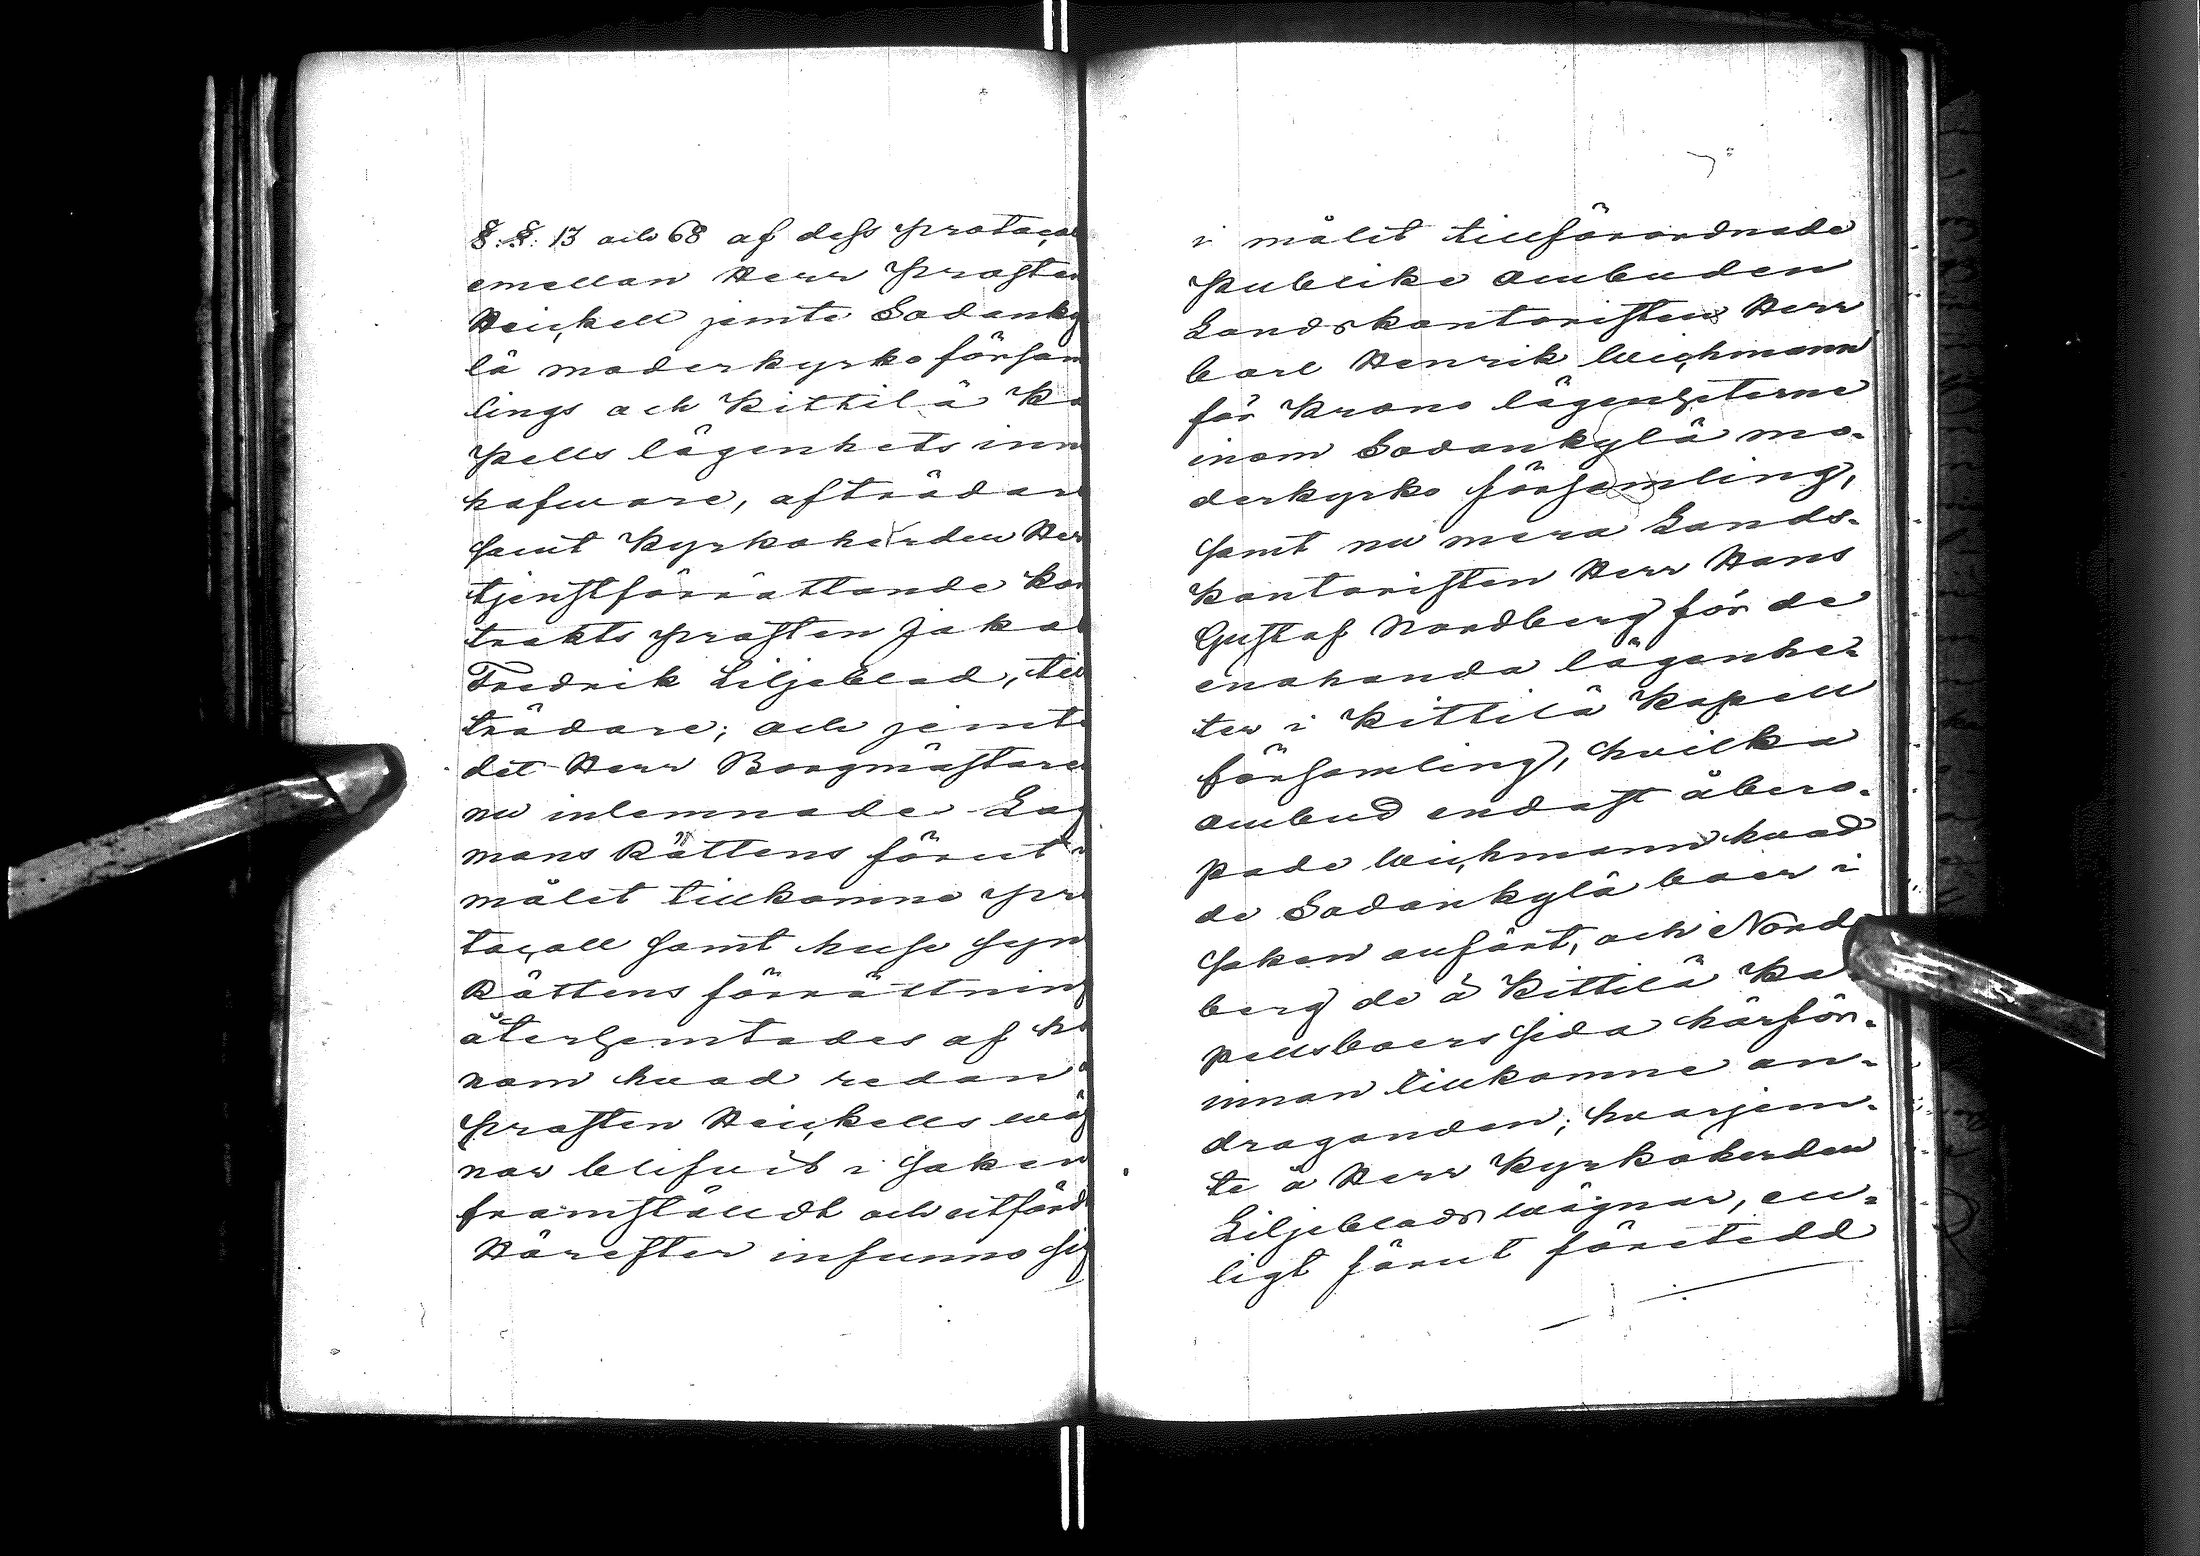 §.§. 13 och 68 af dess protocol
emellan Herr Prosten
Heickell jemte Sodanky
lä moderkyrko försam
lings och Kittilä Ka
pells lägenhets inn
hafware, afträdare
samt Kyrkoherden Her
tjenstförrättande Kon
trakts prosten Jakob
Fredrik Liljeblad, till
trädare; och jemte
det Herr Borgmästaren
nu inlemnade Lag
mans Rättens förut i
målet tillkomne pro
tocoll samt huse syn
Rättens förrättning
återhemtades af ho
nom hvad redan å
Prosten Heickells wäg
nar blifvit i saken
framställdt och utfördt
Härefter infunno sig
i målet tillförordnade
Publike Ombuden
Landskontoristen Herr
Carl Henrik Weichmann
för Krono lägenheterne
inom Sodankylä mo-
derkyrko församling,
samt nu mera Lands-
kontoristen Herr Hans
Gustaf Nordberg för de
enahanda lägenhe-
ter i Kittilä Kapell
församling, hvilka
ombud endast åbero-
pade Weichmann hvad
de Sodankylä boer i
saken anfört, och Nord
berg de å Kittilä Ka
pellsboers sida härför-
innan tillkomne an-
draganden; hvarjem-
te å Herr Kyrkoherden
Liljeblads wägnar, en-
ligt förut företedd